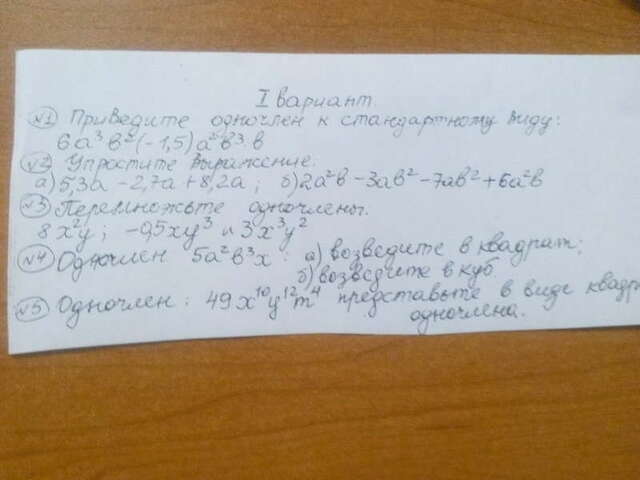 I вариант.
№1 Приведите одночлен к стандартному виду:
6a³b²(-1,5)a²b³·b
№2 Упростите выражение:
а) 5,3a - 2,7a + 8,2a; б) 2a²b - 3ab² - 7ab² + 6a²b
№3 Перемножьте одночлены.
8x²y; -0,5xy³ и 3x³y²
№4 Одночлен 5a²b³x: а) возведите в квадрат;
б) возведите в куб
№5 Одночлен: 49x¹⁰y¹²m⁴ представьте в виде квадр
одночлена.